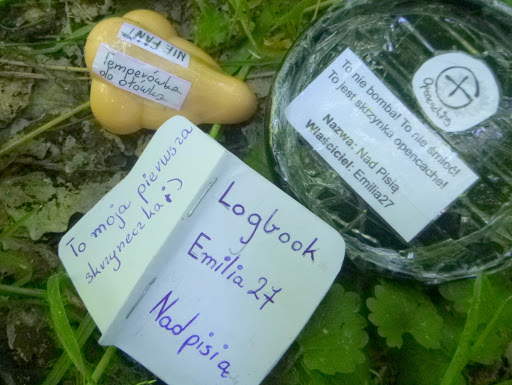 NIE FANT
Temperówka
do ołówka
To nie bomba! To nie śmieć!
To jest skrzynka opencache!
Nazwa: Nad Pisią
Właściciel: Emilia27
To moja pierwsza
skrzyneczka :)
Logbook
Emilia 27
Nad pisią